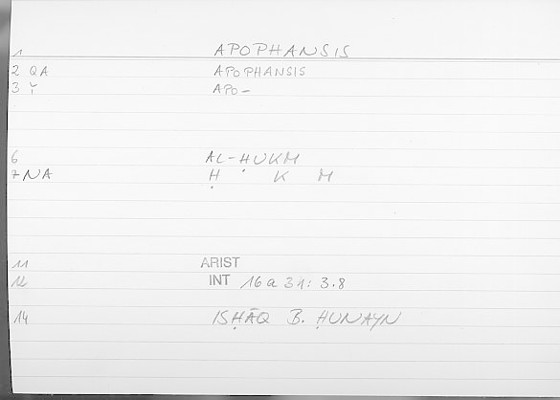 1 APOPHANSIS
2 QA APOPHANSIS
3 Ῐ APO-
6 AL-ḤUKM
7 NA Ḥ K M
11 ARIST
12 INT 16a31: 3.8
14 ISḤĀQ B. ḤUNAYN